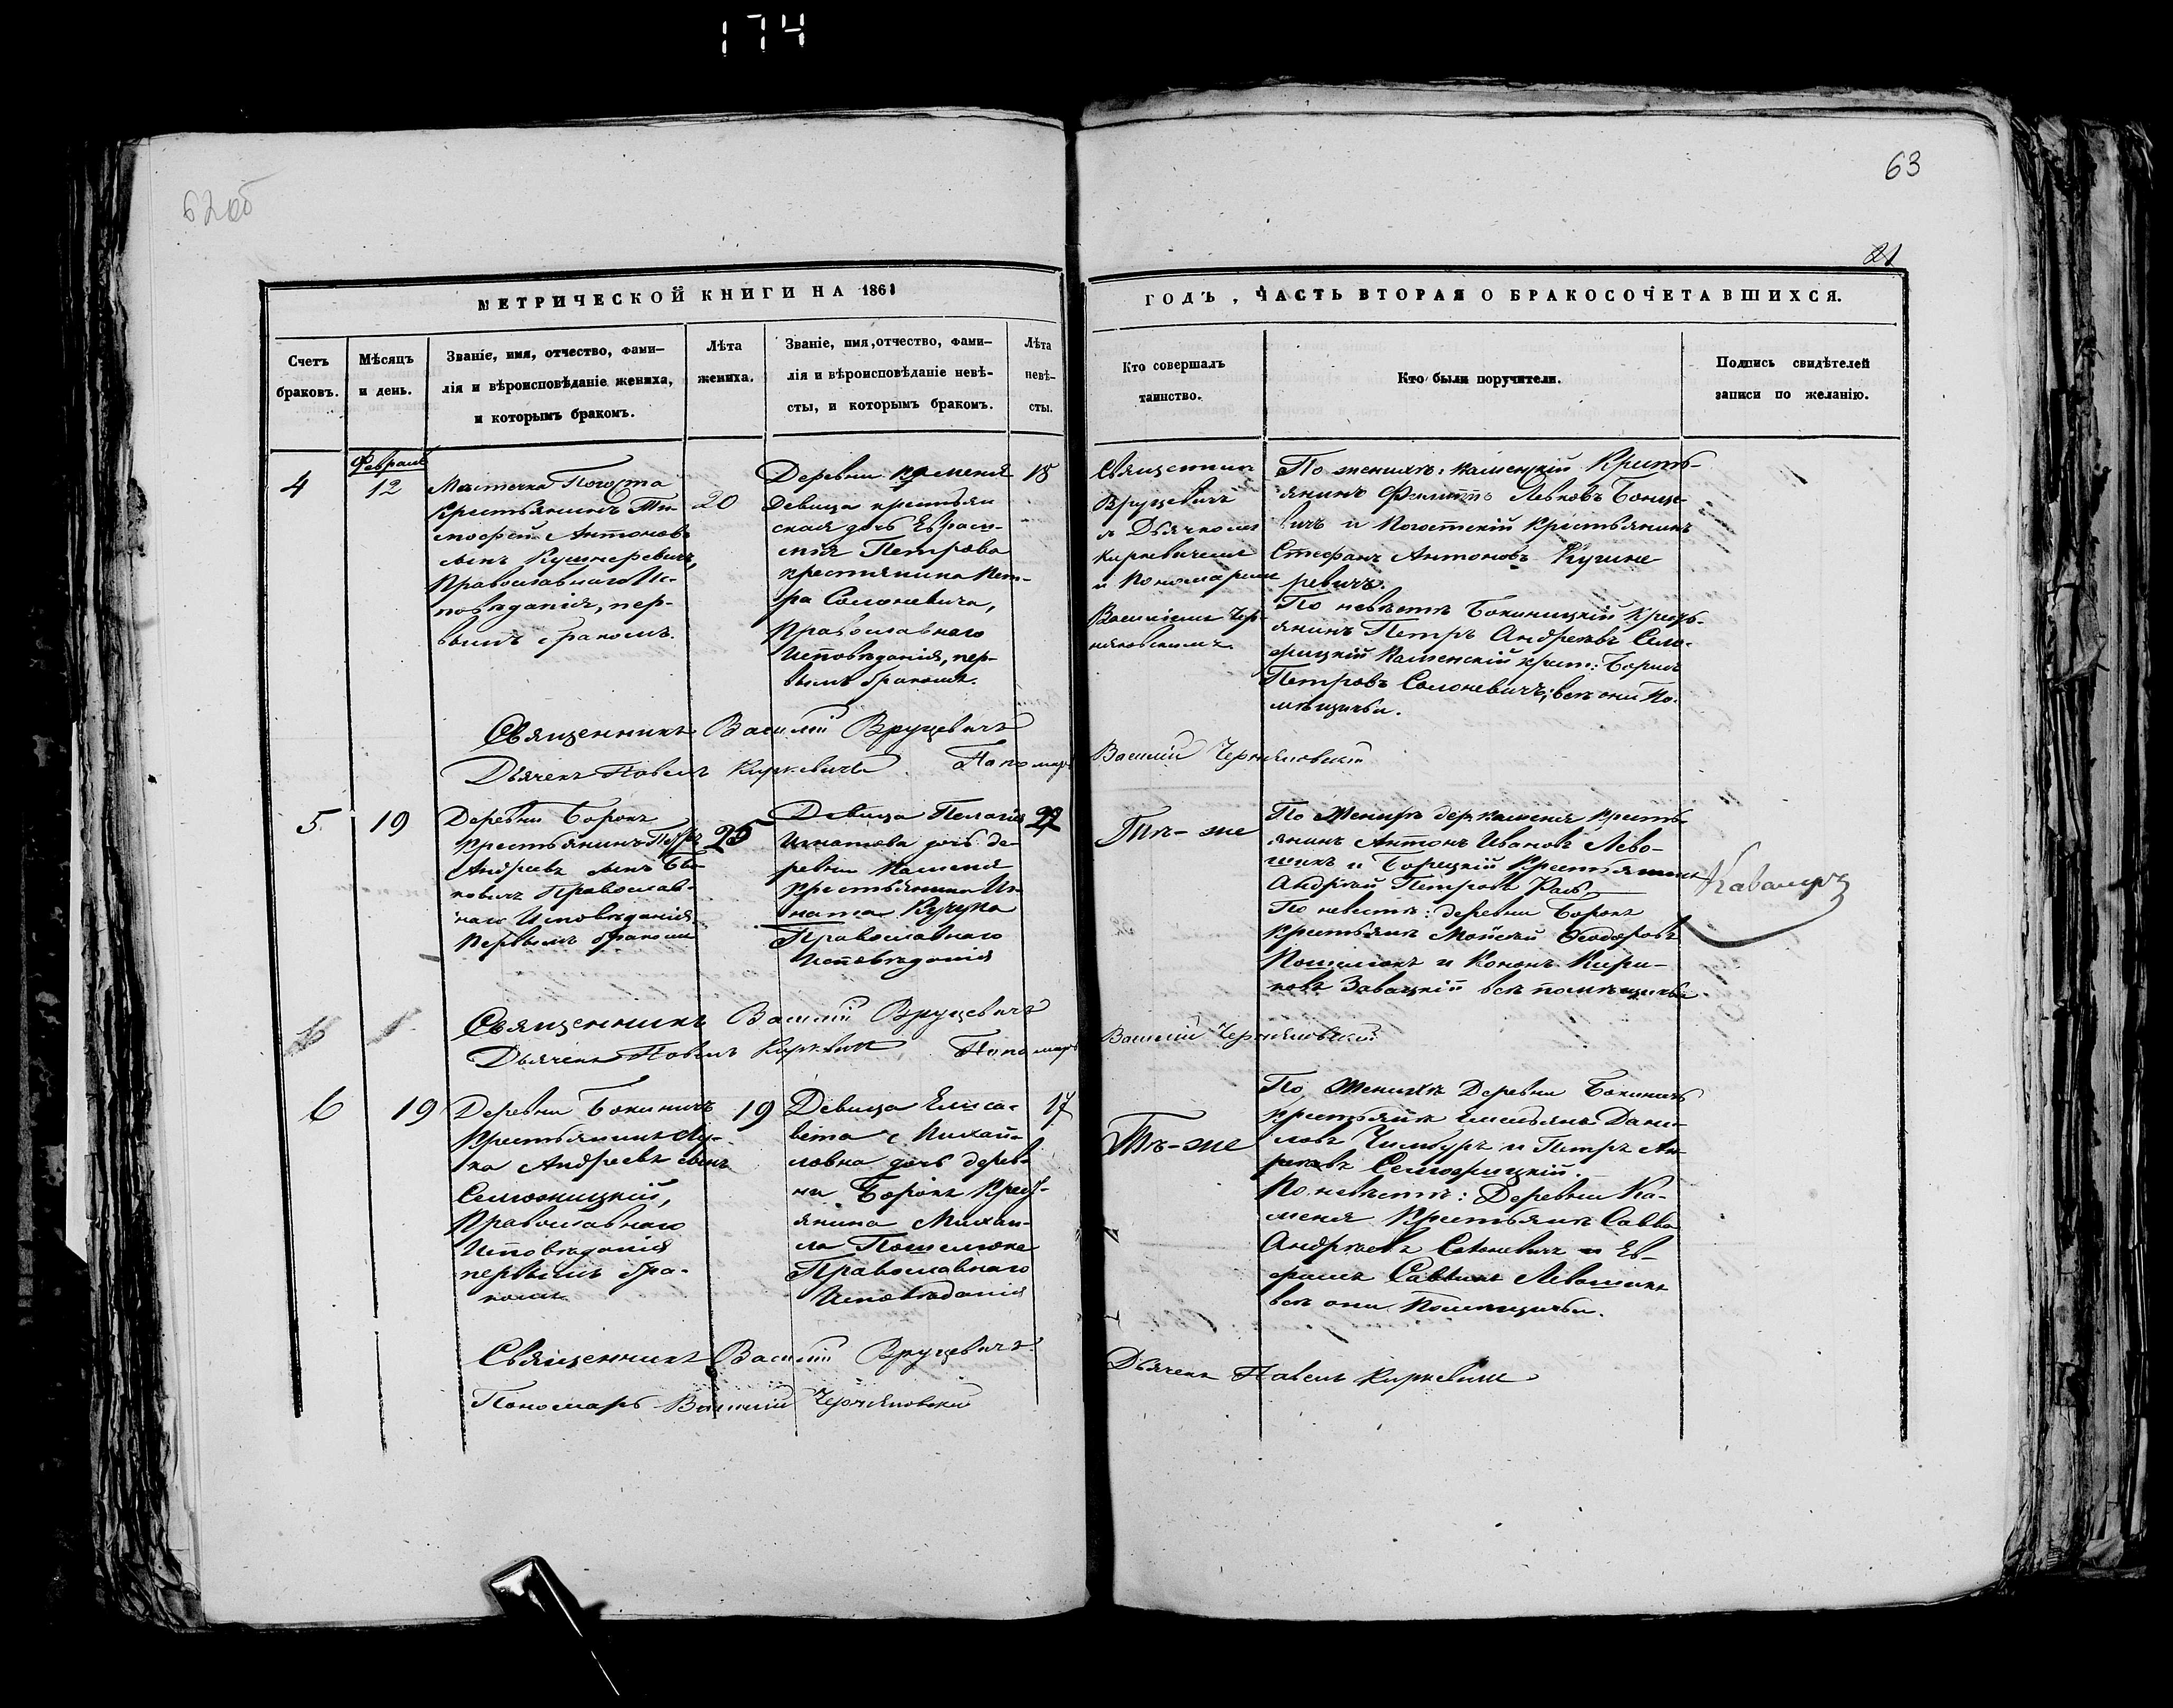 174
62об
63
21
МЕТРИЧЕСКОЙ КНИГИ НА 1861
ГОДЪ, ЧАСТЬ ВТОРАЯ О БРАКОСОЧЕТАВШИХСЯ.
Счетъ
браковъ.
Мѣсяцъ
и день.
Званіе, имя, отчество, фами-
лія и вѣроисповѣданіе жениха,
и которымъ бракомъ.
Лѣта
жениха.
Званіе, имя, отчество, фами-
лія и вѣроисповѣданіе невѣ-
сты, и которымъ бракомъ.
Лѣта
невѣ-
сты.
Кто совершалъ
таинство.
Кто были поручители.
Подпись свидѣтелей
записи по желанію.
4
Февраля
12
Мѣстечка Погоста
Крестьянинъ Ти-
мофей Антоновъ
сынъ Кушнеревичъ,
Православнаго Ис-
повѣданія, пер-
вымъ бракомъ.
20
Деревни Каменя
Девица крестьян
ская дочь Евфи-
мія Петрова
крестянина Пет-
ра Солоневича,
Православнаго
Исповѣданія, пер-
вымъ бракомъ.
18
Священник
Вруцевичъ
съ Дьячкомъ
Киркевичемъ
и Пономаремъ
Василіемъ Чер-
няковскимъ
По женихѣ: каменскій Кресть-
янинъ Филиппъ Левковъ
и Погостскій Крестьянинъ
Стефанъ Антоновъ Кушне
ревичъ.
По невѣстѣ Бокиницкій Кресть-
янинъ Петръ Андреевъ Село-
фицкій Каменскій крест: Борисъ
Петровъ Солоневичъ; всѣ они По-
мѣщичьи.
Священникъ Василій Вруцевичъ
Дьячекъ Павелъ Киркевичъ Пономарь
Василій Черняковскій
5
19
Деревни Борокъ
Крестьянинъ Петръ
Андреевъ сынъ
Православ-
наго Исповѣданія
Первымъ бракомъ
25
Девица Пелагія
Игнатова дочь де-
ревни Каменя
Крестьянина Иг-
ната Кучука
Православнаго
Исповѣданія
22
Тѣ-же
По Женихѣ дер Каменя Кресть-
янинъ Антонъ Ивановъ Лево-
шикъ и Борецкій Крестьянинъ
Андрей Петровъ
По невестѣ: деревни Борокъ
Крестьянъ Мойсей Феодоровъ
Пошелюкъ и Кононъ
Завацкій всѣ помѣщичьи
Священникъ Василій Вруцевичъ
Дьячекъ Павелъ Киркевичъ Пономарь
Василій Черняковскій
6
19
Деревни Бокиничъ
Крестьянинъ Лу-
ка Андреевъ сынъ
Православнаго
Исповѣданія
первымъ бра-
комъ
19
Девица Елиса-
вета Михай-
ловна дочь дерев-
ни Борокъ Крест-
янина Михаи-
ла Пошелюка
Православнаго
Исповѣданія
17
Тѣ-же
По Женихѣ Деревни Бокиничъ
Крестьянъ Емельянъ Дани-
ловъ и Петръ Ан
реевъ Селюфицкій.
По невѣстѣ: Деревни Ка-
меня Крестьянъ Савва
Андреевъ Солоневичъ и Ев-
фимъ Саввинъ Левошикъ
всѣ они Помѣщичьи.
Священникъ Василій Вруцевичъ
Дьячекъ Павелъ Киркевичъ
Пономарь Василій Черняковскій